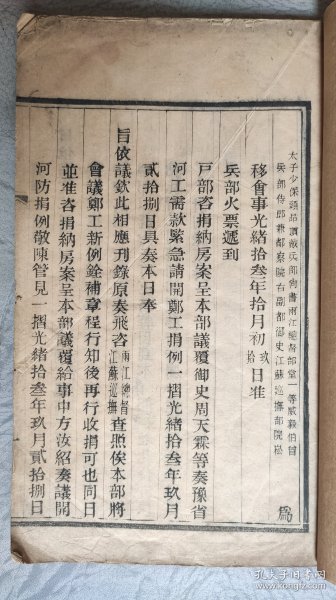 太子少保頭品頂戴兵部尚書兩江總督部堂一等威毅伯曾
兵部侍郎兼都察院右副都御史江蘇巡撫部院崧
為
移會事光緒拾叁年拾月初玖拾日准
兵部火票遞到
戶部咨捐納房案呈本部議覆御史周天霖等奏豫省
河工需款緊急請開鄭工捐例一摺光緒拾叁年玖月
貳拾捌日具奏本日奉
旨依議欽此相應刊錄原奏飛咨兩江總督江蘇巡撫查照俟本部將
會議鄭工新例銓補章程行知後再行收捐可也同日
並准咨捐納房案呈本部議覆給事中方汝紹奏議開
河防捐例敬陳管見一摺光緒拾叁年玖月貳拾捌日
孔夫子旧书网
www.kongfz.com